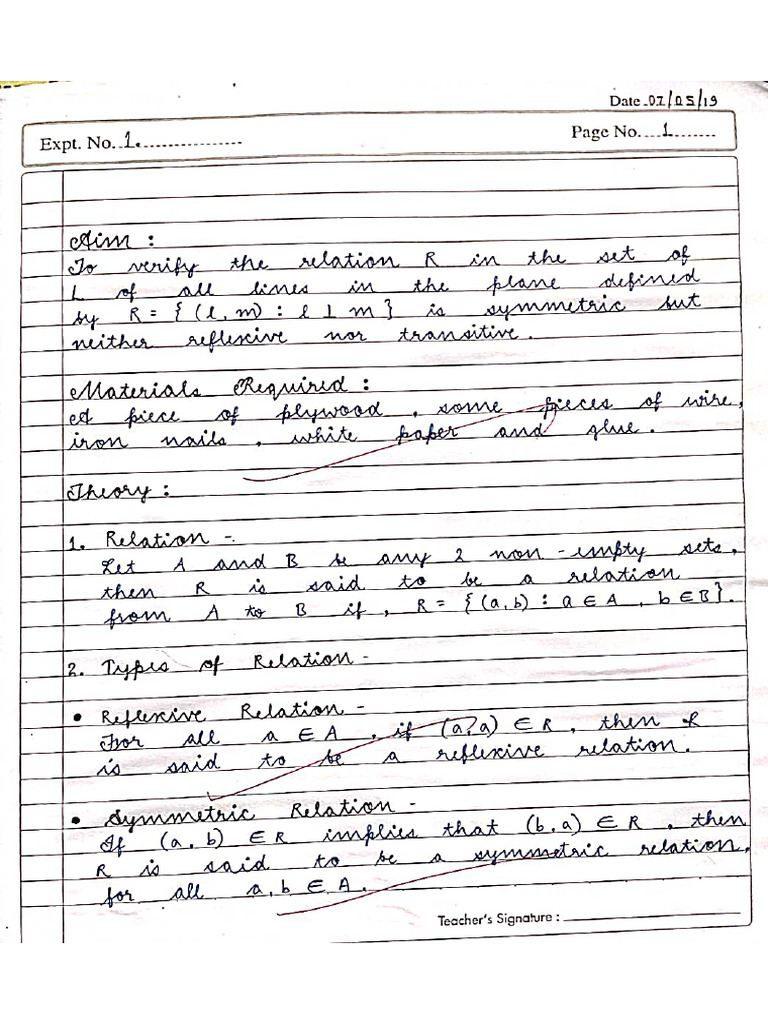 Date 07/05/19
Expt. No. 1.
Page No. 1
Aim :
To verify the relation R in the set of
L of all lines in the plane defined
by R = { (l, m) : l ⊥ m } is symmetric but
neither reflexive nor transitive.
Materials Required :
A piece of plywood, some pieces of wire,
iron nails, white paper and glue.
Theory :
1. Relation -
Let A and B be any 2 non-empty sets,
then R is said to be a relation
from A to B if, R = {(a, b) : a ∈ A, b ∈ B}.
2. Types of Relation -
• Reflexive Relation -
For all a ∈ A, if (a, a) ∈ R, then R
is said to be a reflexive relation.
• Symmetric Relation -
If (a, b) ∈ R implies that (b, a) ∈ R, then
R is said to be a symmetric relation,
for all a, b ∈ A.
Teacher's Signature :